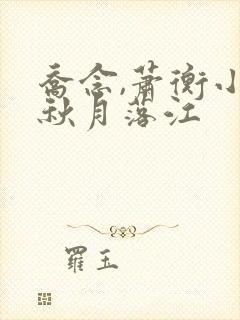 喬念,蕭衡小
秋月落江
羅玉